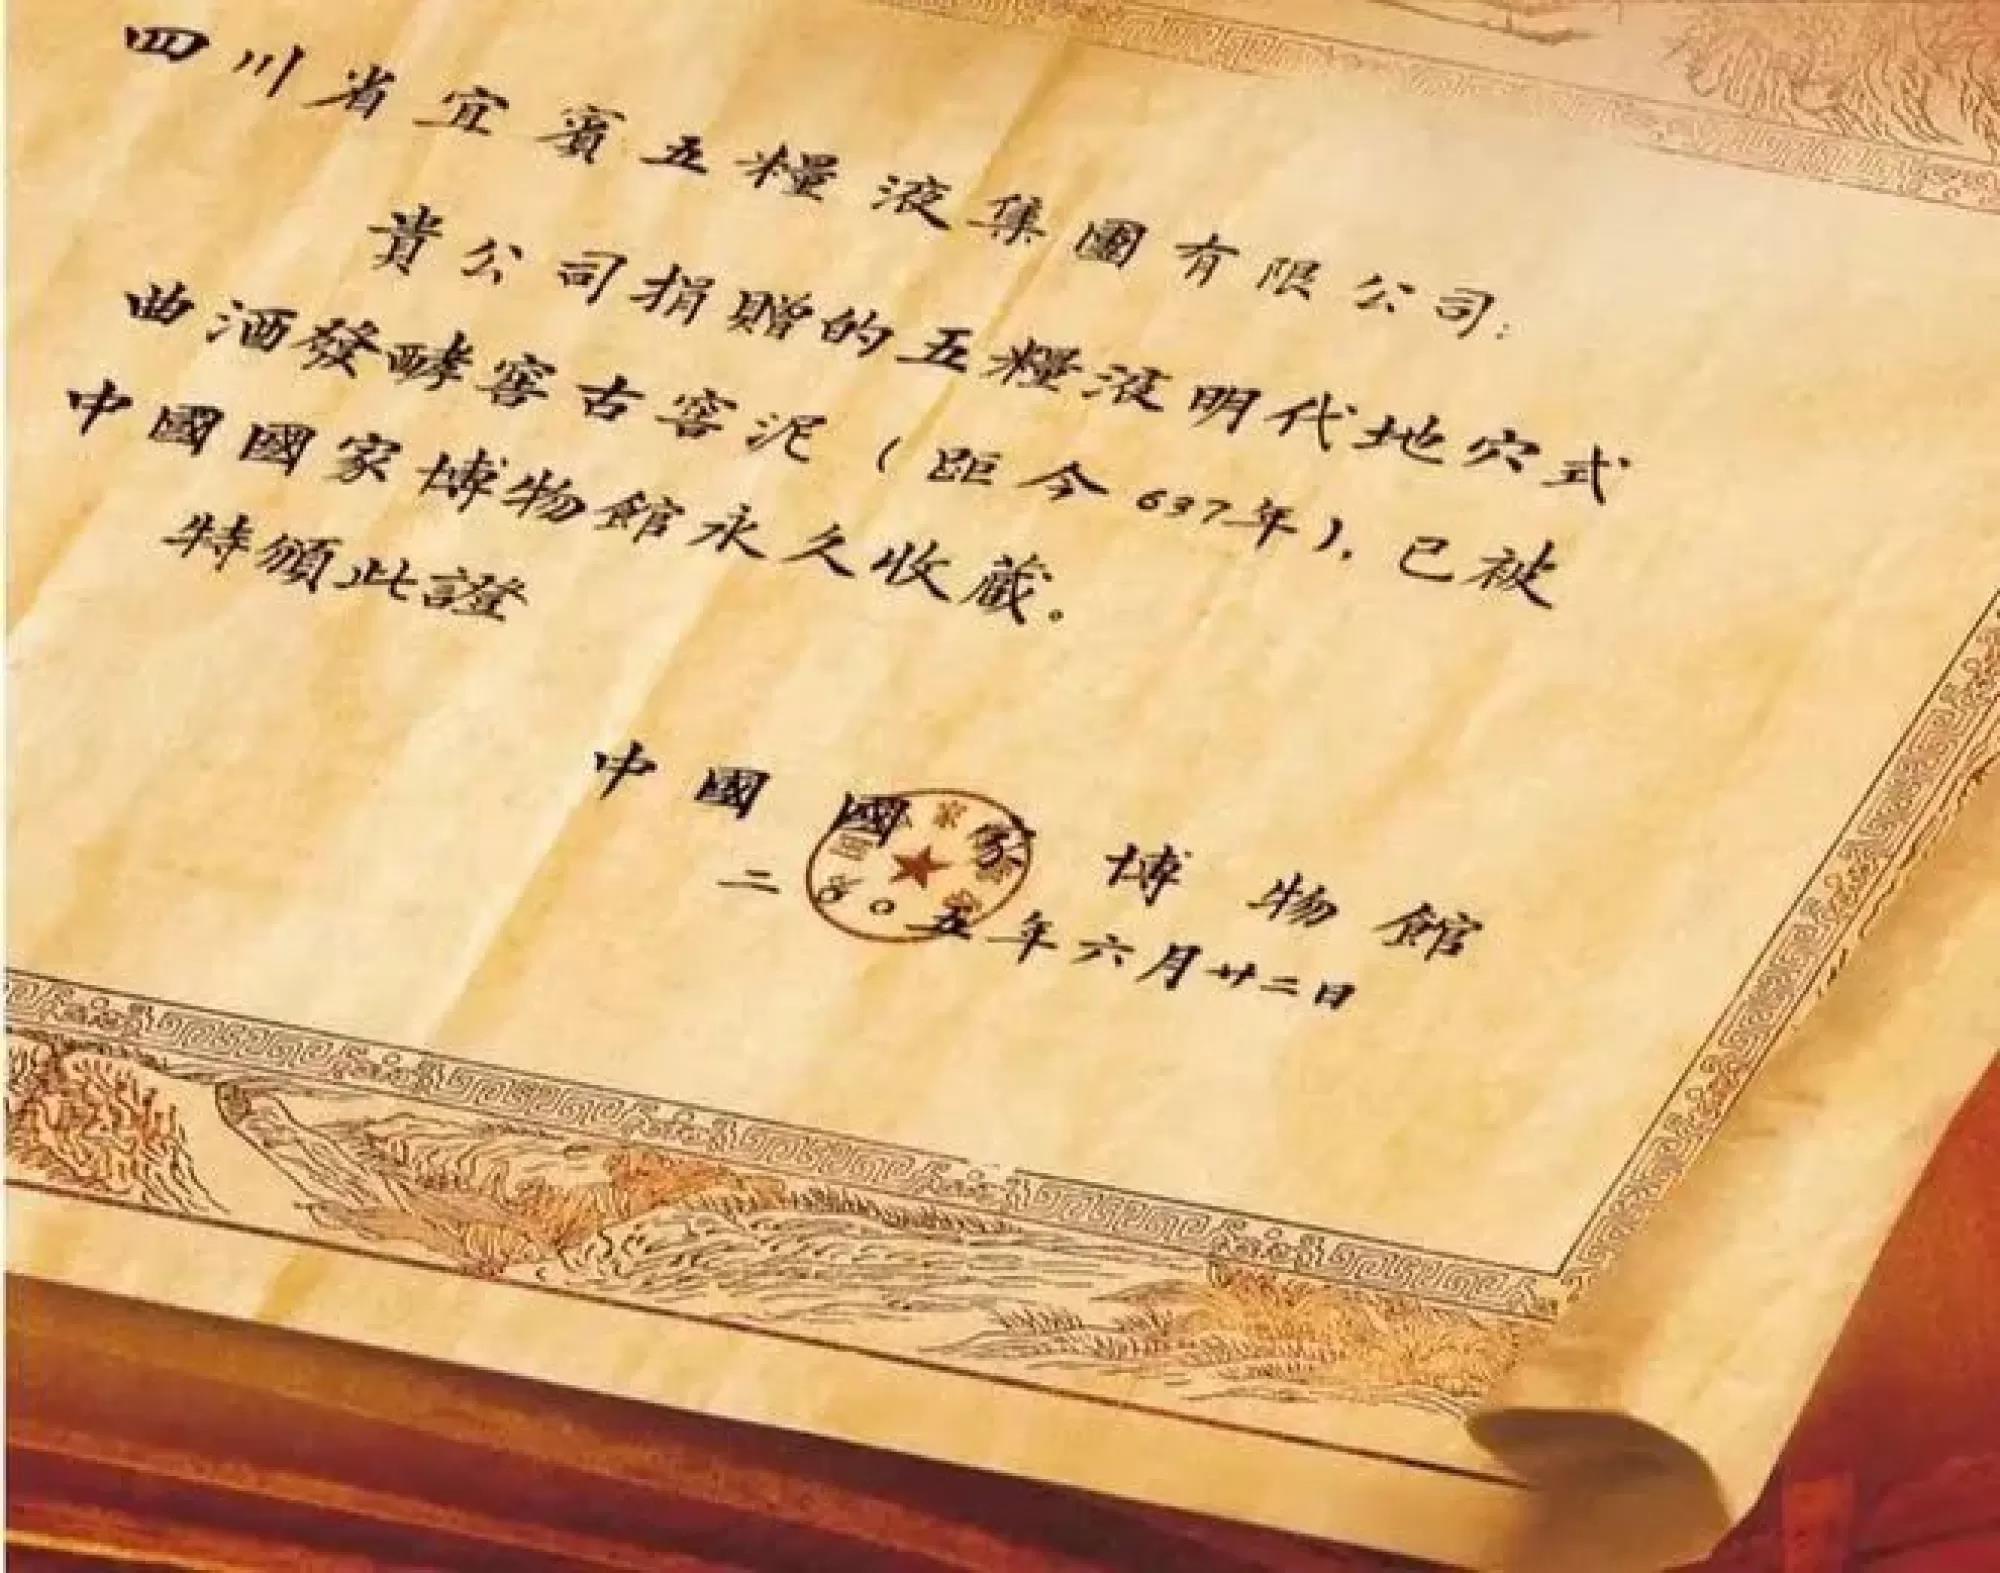 四川省宜賓五糧液集團有限公司:
貴公司捐贈的五糧液明代地穴式
曲酒發酵窖古窖泥(距今637年),已被
中國國家博物館永久收藏。
特頒此證
中國國家博物館
二〇〇五年六月廿二日